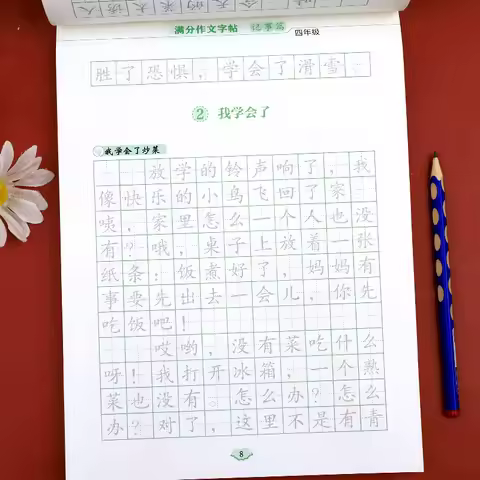 满分作文字帖 记事篇 四年级
胜了恐惧，学会了滑雪。
2 我学会了
我学会了炒菜
放学的铃声响了，我
像快乐的小鸟飞回了家。
咦，家里怎么一个人也没
有？哦，桌子上放着一张
纸条：饭煮好了，妈妈有
事要先出去一会儿，你先
吃饭吧！
哎哟，没有菜吃什么
呀！我打开冰箱，一个熟
菜也没有。怎么办？怎么
办？对了，这里不是有青
8